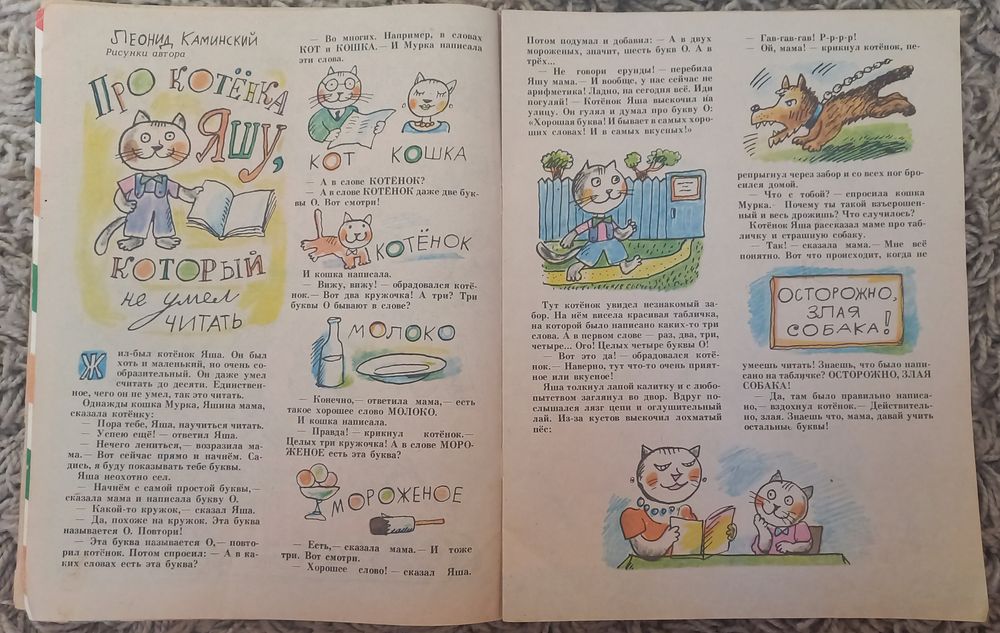 Леонид Каминский
Рисунки автора
Про котёнка
Яшу,
который
не умел
читать
Жил-был котёнок Яша. Он был
хоть и маленький, но очень со-
образительный. Он даже умел
считать до десяти. Единствен-
ное, чего он не умел, так это читать.
Однажды кошка Мурка, Яшина мама,
сказала котёнку:
— Пора тебе, Яша, научиться читать.
— Успею ещё! — ответил Яша.
— Нечего лениться,— возразила ма-
ма.— Вот сейчас прямо и начнём. Са-
дись, я буду показывать тебе буквы.
Яша неохотно сел.
— Начнём с самой простой буквы,—
сказала мама и написала букву О.
— Какой-то кружок,— сказал Яша.
— Да, похоже на кружок. Эта буква
называется О. Повтори!
— Эта буква называется О,— повто-
рил котёнок. Потом спросил: — А в ка-
ких словах есть эта буква?
— Во многих. Например, в словах
КОТ и КОШКА.— И Мурка написала
эти слова.
КОТ КОШКА
— А в слове КОТЕНОК?
— А в слове КОТЕНОК даже две бук-
вы О. Вот смотри!
КОТЁНОК
И кошка написала.
— Вижу, вижу! — обрадовался котё-
нок.— Вот два кружочка! А три? Три
буквы О бывают в слове?
МОЛОКО
— Конечно,— ответила мама,— есть
такое хорошее слово МОЛОКО.
И кошка написала.
— Правда! — крикнул котёнок.—
Целых три кружочка! А в слове МОРО-
ЖЕНОЕ есть эта буква?
МОРОЖЕНОЕ
— Есть,— сказала мама.— И тоже
три. Вот смотри.
— Хорошее слово! — сказал Яша.
Потом подумал и добавил: — А в двух
мороженых, значит, шесть букв О. А в
трёх...
— Не говори ерунды! — перебила
Яшу мама.— И вообще, у нас сейчас не
арифметика! Ладно, на сегодня всё. Иди
погуляй! — Котёнок Яша выскочил на
улицу. Он гулял и думал про букву О:
«Хорошая буква! И бывает в самых хоро-
ших словах! И в самых вкусных!»
Тут котёнок увидел незнакомый за-
бор. На нём висела красивая табличка,
на которой было написано каких-то три
слова. А в первом слове — раз, два, три,
четыре... Ого! Целых четыре буквы О!
— Вот это да! — обрадовался котё-
нок.— Наверно, тут что-то очень прият-
ное или вкусное!
Яша толкнул лапой калитку и с любо-
пытством заглянул во двор. Вдруг по-
слышался лязг цепи и оглушительный
лай. Из-за кустов выскочил лохматый
пёс:
— Гав-гав-гав! Р-р-р-р!
— Ой, мама! — крикнул котёнок, пе-
репрыгнул через забор и со всех ног бро-
сился домой.
— Что с тобой? — спросила кошка
Мурка.— Почему ты такой взъерошен-
ный и весь дрожишь? Что случилось?
Котёнок Яша рассказал маме про таб-
личку и страшную собаку.
— Так! — сказала мама.— Мне всё
понятно. Вот что происходит, когда не
ОСТОРОЖНО,
ЗЛАЯ
СОБАКА!
умеешь читать! Знаешь, что было напи-
сано на табличке? ОСТОРОЖНО, ЗЛАЯ
СОБАКА!
— Да, там было правильно написа-
но,— вздохнул котёнок.— Действитель-
но, злая. Знаешь что, мама, давай учить
остальные буквы!